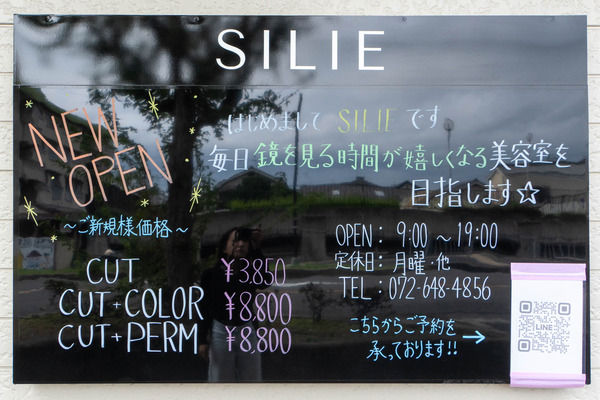 SILIE
NEW
OPEN
はじめまして SILIE です
毎日 鏡を見る時間が嬉しくなる美容室を
目指します☆
～ご新規様価格～
CUT ¥3,850
CUT+COLOR ¥8,800
CUT+PERM ¥8,800
OPEN: 9:00 ～19:00
定休日: 月曜・他
TEL: 072-648-4856
こちらからご予約を
承っております!! →
LINE